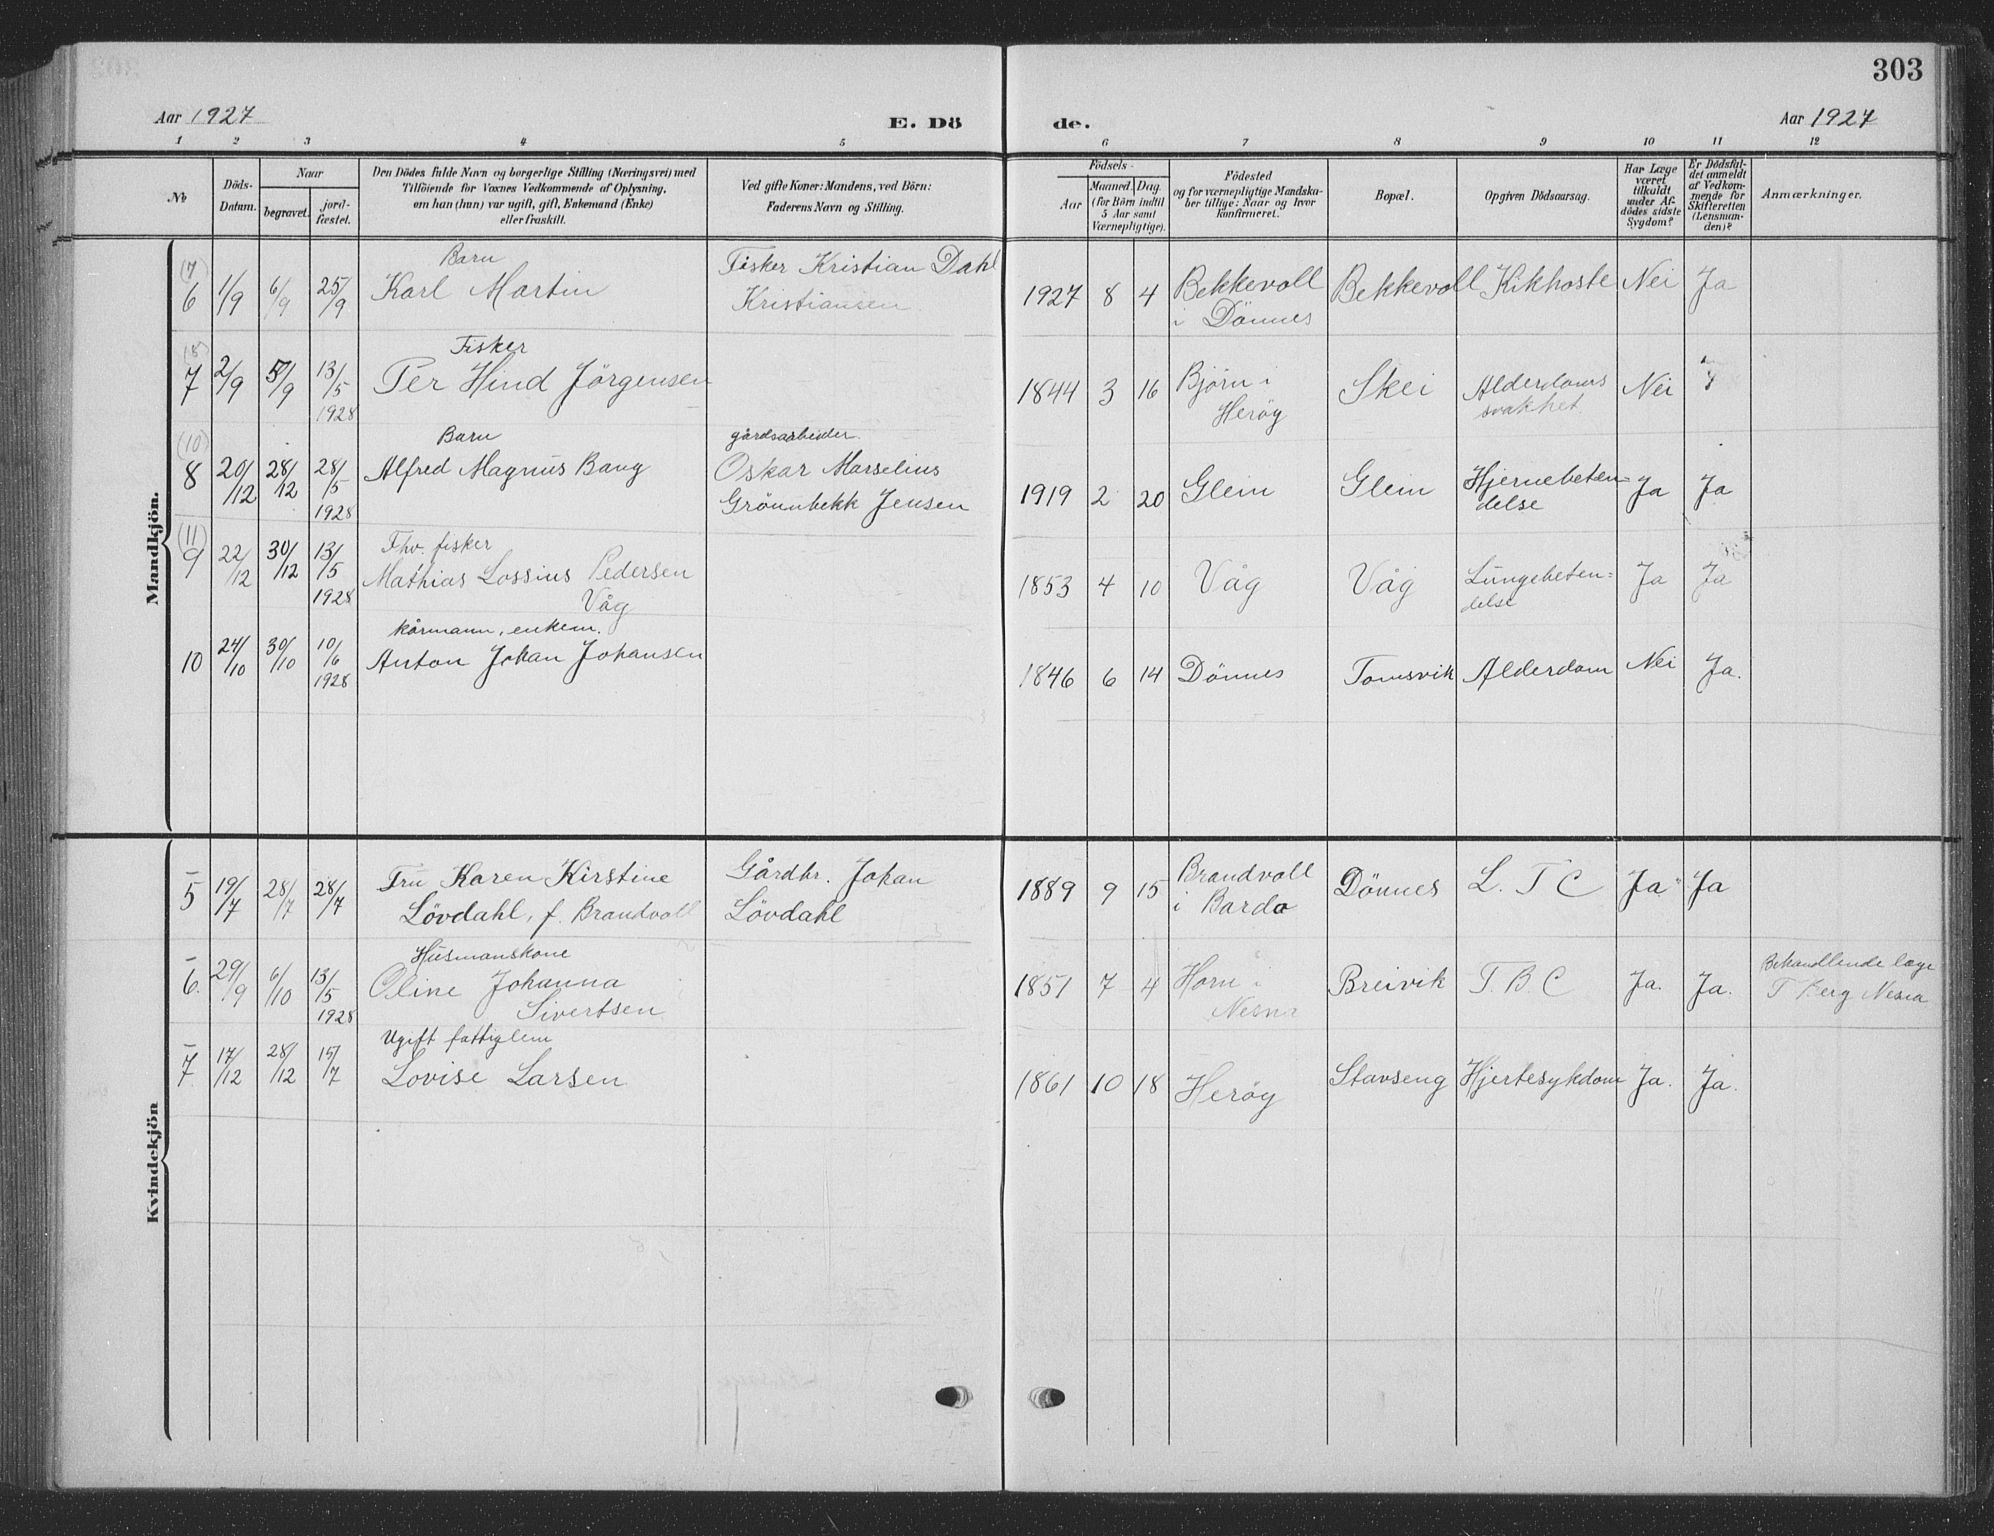 303
Aar 1927 E. Dö de. Aar 1927
1 2 3 4 5 6 7 8 9 10 11 12
No
Döds-Datum.
Naar
begravet.
jord-fæstet.
Den Dödes fulde Navn og borgerlige Stilling (Næringsvei) med
Tilföiende for Voxnes Vedkommende af Oplysning,
om han (hun) var ugift, gift, Enkemand (Enke)
eller fraskilt.
Ved gifte Koner: Mandens, ved Börn:
Faderens Navn og Stilling.
Födsels-
Aar
Maaned. Dag.
(for Börn indtil
5 Aar samt
Værnepligtige).
Födested
og for værnepligtige Mandska-
ber tillige: Naar og hvor
konfirmeret.
Bopæl.
Opgiven Dödsaarsag.
Har Læge
været
tilkaldt
under Af-
dödes sidste
Sygdom?
Er Dödsfal-
det anmeldt
af Vedkom-
mende for
Skifteretten
(Lensman-
den)?
Anmærkninger.
Mandkjön.
(7) Barn Fisker Kristian Dahl
6 1/9 6/9 25/9 Karl Martin Kristiansen 1927 8 4 Bekkevoll Bekkevoll Kikhoste Nei Ja
i Dönnes
(8) Fisker
7 2/9 5/9 13/5 Per Hind Jörgensen 1844 3 16 Björn i Skei Alderdoms Nei
1928 Heröy svakhet
(10) Barn gårdsarbeider
8 20/12 28/12 28/5 Alfred Magnus Bang Oskar Marselius 1919 2 20 Glein Glein Hjernebeten= Ja Ja
1928 Grönnbekk Jensen delse
(11) Fhv. fisker
9 22/12 30/12 13/5 Mathias Lossius Pedersen 1853 4 10 Våg Våg Lungebeten= Ja Ja
1928 Våg delse
kårmann, enkem.
10 24/10 30/10 10/6 Anton Johan Johansen 1846 6 14 Dönnes Tomsvik Alderdom Nei Ja.
1928
Kvindekjön
5 19/7 28/7 28/7 Fru Karen Kirstine Gårdbr. Johan 1889 9 15 Brandvoll Dönnes L. T C Ja Ja
Lövdahl, f. Brandvoll Lövdahl i Bardo
Husmanskone Behandlende læge
6. 29/9 6/10 13/5 Oline Johanna 1851 7 4 Horn i Breivik T. B. C Ja. Ja. T Berg Nesna
1928 Sivertsen Nesna
Ugift fattiglem
7 17/12 28/12 15/7 Lovise Larsen 1861 10 18 Heröy Stavseng Hjertesykdom Ja. Ja.